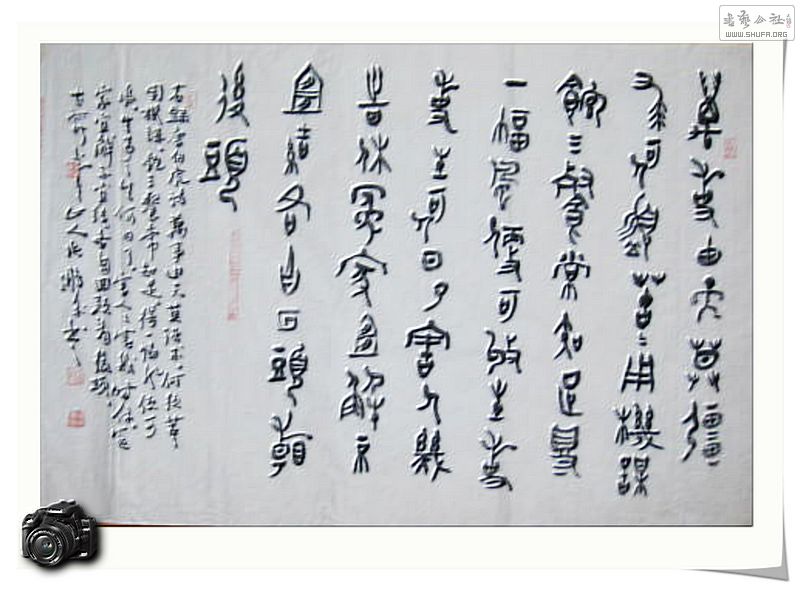 萬事由天莫彊
求何須苦〻用機謀
飽三餐常知足得
一幅風便可收生事
事生何日了害人幾
時休冤家宜解不
宜結各自回頭看
後頭
右錄唐伯虎詩萬事由天莫強求何須苦
用機謀飽三餐常知足得便可
收生事事生何日了害人人害幾時休冤
家宜解不宜結各自回頭看後頭
山人張書
書藝公社
WWW.SHUFA.ORG